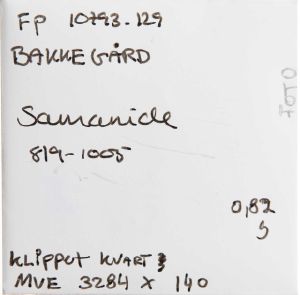 FP 10793.129
BAKKEGÅRD
FOTO
Samanide
819-1005
0,82
g
KLIPPET KVART
MVE 3284 X 140